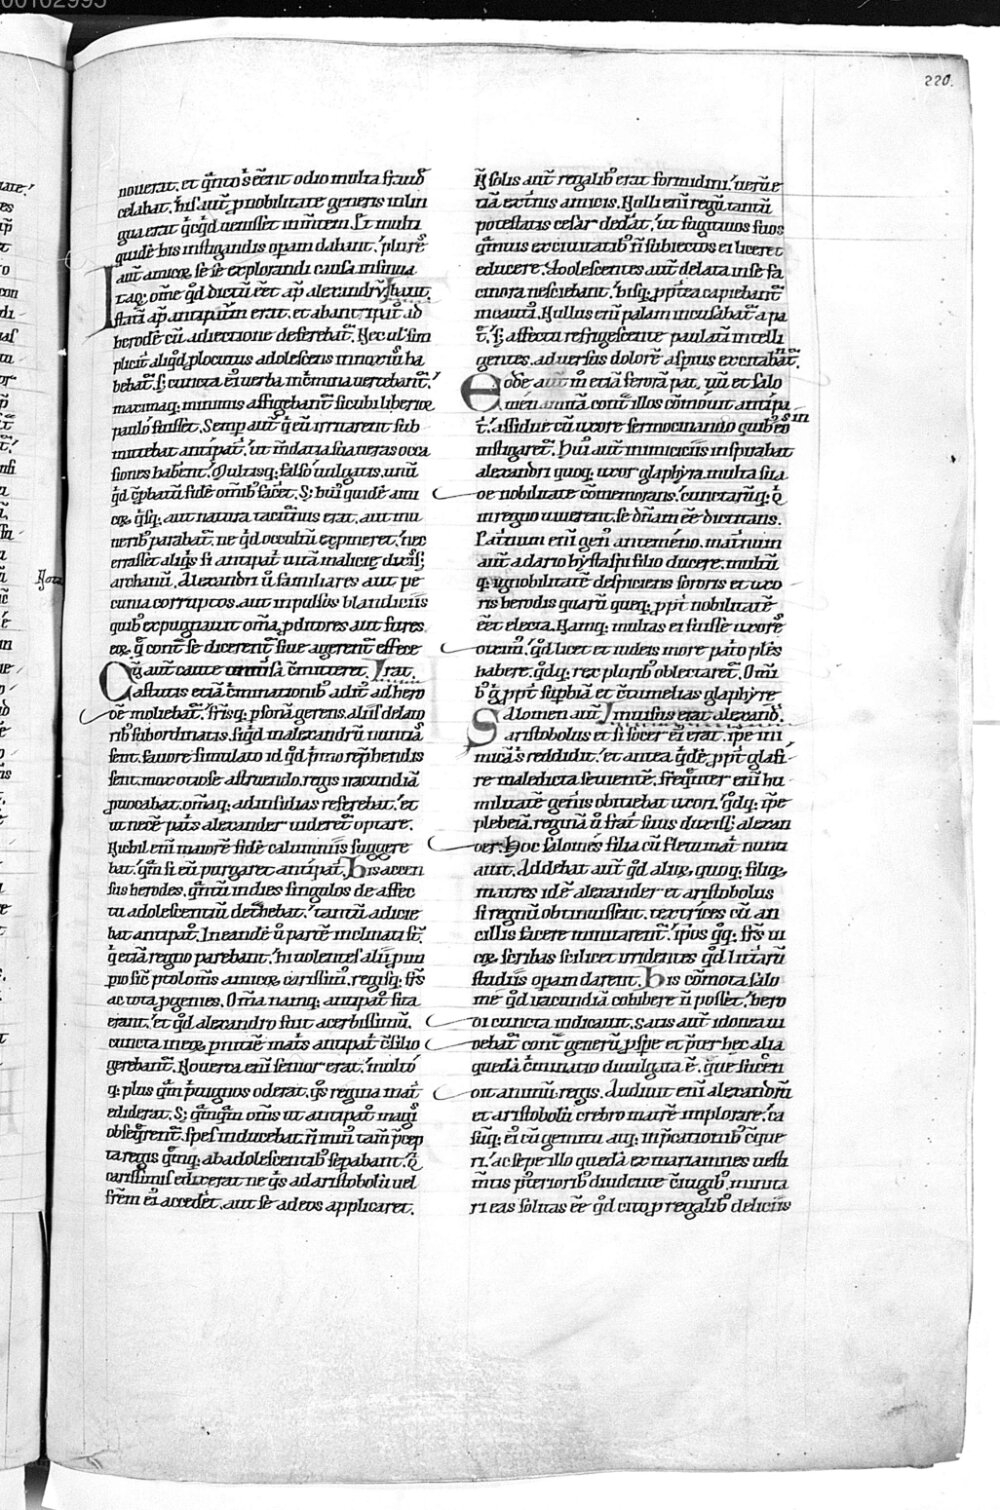 220.
nouerat. et q̄nto s̄ eēnt odio multa fraud̄
celabat. his aut̄ p nobilitate generis in lin
gua erat q̇cq̇d uenisset in mentem. Et multi
quidē his instigandis opam dabant. plures
aut̄ amicoꝝ se se explorandi causa insinua
Itaq; om̄e qd̄ dictū eēt ap̄ alexandrū bant.
statī ap̄ antipatrum erat. et ab antipat̄ ad
herodē cū adiectione deferebat̄. Nec ul̄ sim
plicit̄ aliq̇d p locutus adolescens innoxiū ha
bebat̄. s; cuncta ei uerba in c̄mina uertebant̄.
maximaq; minimis affigebant̄ sicubi liberioꝝ
paulo fuisset. Semp aut̄ q̇ eū irruarent sub
mittebat antipat̄. ut mdatia sua ueras occa
siones habēnt. Multisq; falso uulgatis. unū
qd̄ c̄pbatū fidē om̄ib; facēt. S; hui quidē ami
coꝝ q̇sq; aut natura taciturnus erat. aut mu
nerib; parabat̄. ne qd̄ occultū exp̄meret. nec
errasset aliq̇s si antipat̄ uitā malicię dixiss;
archanū. Alexandri ū familiares aut pe
cunia corruptos. aut inpulsos blandiciis
quib; expugnauit om̄a. p ditores aut fures
eoꝝ q̄ cont̄ se dicerent̄ siue agerent̄ effece
Cū aut̄ caute omnisa c̄mitteret. rat.
astutis etiā c̄minationib; adit̄ ad hero
dē moliebat̄. fr̄isq; p sonā gerens. aliis delato
rib; subordinatis. siq̇d in alexandrū nuntia
sent. fauore simulato id qd̄ p̄mo rep̄hendis
sent. mox otiose astruendo. regis iracundiā
p uocabat. om̄aq; ad insidias referebat. et
ut nece patr̄is alexander uideret̄ optare.
Nichil eni maiorē fidē calumniis suggere
bat. q̄m si eū purgaret antipat̄. His accen
sus herodes. q̄ntū indies singulos de affec
tu adolescentiū det̄hebat. tantū adicie
bat antipat̄. In eandē ū partē inclinati st̄.
q̇ etiā regno parebant. hi uolentes alii pun
pio sic̄ ptolom̄s amicoꝝ carissim̄. regisq; fr̄s
ac tota pgenies. Om̄a namq; antipat̄ sita
erant. et qd̄ alexandro fuit acerbissimū.
cuncta in eos p nitiē matr̄is antipat̄ c̄silio
gerebant̄. Nouerca eni senior erat. multo
q; plus q̄m p̄uignos oderat. q̇s regina mat̄
ediderat. S; q̄mq̄m om̄s ut antipat̄ magi
obseq̄rent̄. spes inducebat. n̄ min̄ tam̄ p̄cep
ta regis q̄mq; ab adolescentib; sepabant. Q̇
carissimis edixerat ne q̇s ad aristobolū uel
frēm ei accedēt. aut se ad eos applicaret.
N̄ solis aut̄ regalib; erat formidini. uerūe
tiā extīnis amicis. Nulli eni regū tantū
potestatis cesar dedāt. ut fugitiuos suos
q̄muis ex ciuitatib; n̄ subiectos ei liceret
educere. Adolescentes aut̄ delata in se fa
cinora nesciebant. hisq; pp̄tea capiebant̄
incauti. Nullus eni palam incusabat̄ a pa
t̄. s; affectu refrigescente paulatī intelli
gentes. aduersus dolorē asp̄ius excitabānt̄.
Eodē aut̄ m̄ etiā ferorā pat̄. uū et salo
mēn amitā. cont̄ illos cōmouit antipa
t̄. assidue cū uxore sermocinando quib; eos in
instigaret̄. Hui aut̄ inimiciis inspirabat
alexandri quoq; uxor glaphyra. multa sua
de nobilitate cōmemorans. cunctarūq; q̄
in regno uiuerent. se dn̄am eē dictitans.
Paternum eni geń a nteméno. maternum
aut̄ a dario hystaspi filio ducere. multū
q; ignobilitatē despiciens sororis et uxo
ris herodis quarū queq; pp̄t nobilitatē
eēt electa. Namq; multas ei fuisse uxores
dixim̄. qd̄ licet et iudeis more pat̄o ples
habere. qdq; rex plurib; oblectaret̄. Om̄i
b; g pp̄t supbiā et c̄tumelias glaphyrę
Salomen aut̄ inuisus erat alexand̄.
aristobolus et si socer ei erat. ipe ini
micā s̄ reddidit. et antea q̇dē. pp̄t glafi
re maledicta seuientē. freq̄nter eni hu
militatē genīis obiciebat uxori. qdq; ipe
plebeiā. reginā ū frat̄ suus duxiss; alexan
der. Hoc salomes filia cū flens mat̄i nunti
auit. Addebat aut̄ qd̄ alioꝝ. quoq; filioꝝ
matres idē alexander et aristobolus
si regnū obtinuissent. textrices cū an
cillis facere minitarent̄. ipos q̇q; fr̄s ui
coꝝ scribas scilicet irridentes qd̄ litt̄arū
studiis opam darent. His cōmota salo
me. qd̄ iracundiā cohibere n̄ possēt. hero
di cuncta indicauit. Satis aut̄ idonea ui
debat̄ cont̄ generū pspe et p̄ter hec alia
quedā c̄minatio diuulgata ē. que succen
dit animū regis. Audiuit eni alexandrū
et aristobolū crebro matrē implorare. ca
sūq; ei cū gemitu atq; inp̄cationib; c̄que
ri. ac sepe illo quedā ex mariamnes uesti
m̄tis p̄terioribus diuidente c̄iugib; minita
ri eas solitas eē qd̄ cito p regalib; deliciis